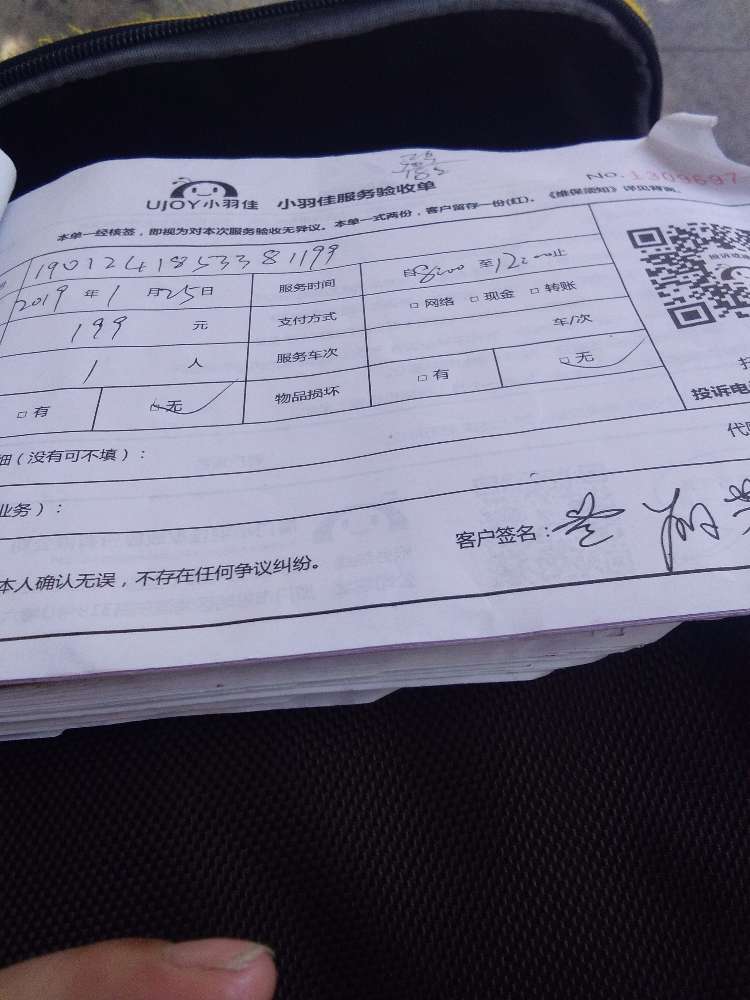 UJOY小羽佳 小羽佳服务验收单
NO.1309697
本单一经核签，即视为对本次服务验收无异议。本单一式两份，客户留存一份(红)。《维保须知》详见背面。
190124185333811 99
2019 年 1 月 25 日 服务时间 自 8:00 至 12:00 止
199 元 支付方式 □ 网络 □ 现金 □ 转账
1 人 服务车次 车/次
□ 有 □ 无 物品损坏 □ 有 □ 无
投诉电
细（没有可不填）：
业务）：
客户签名：
本人确认无误，不存在任何争议纠纷。